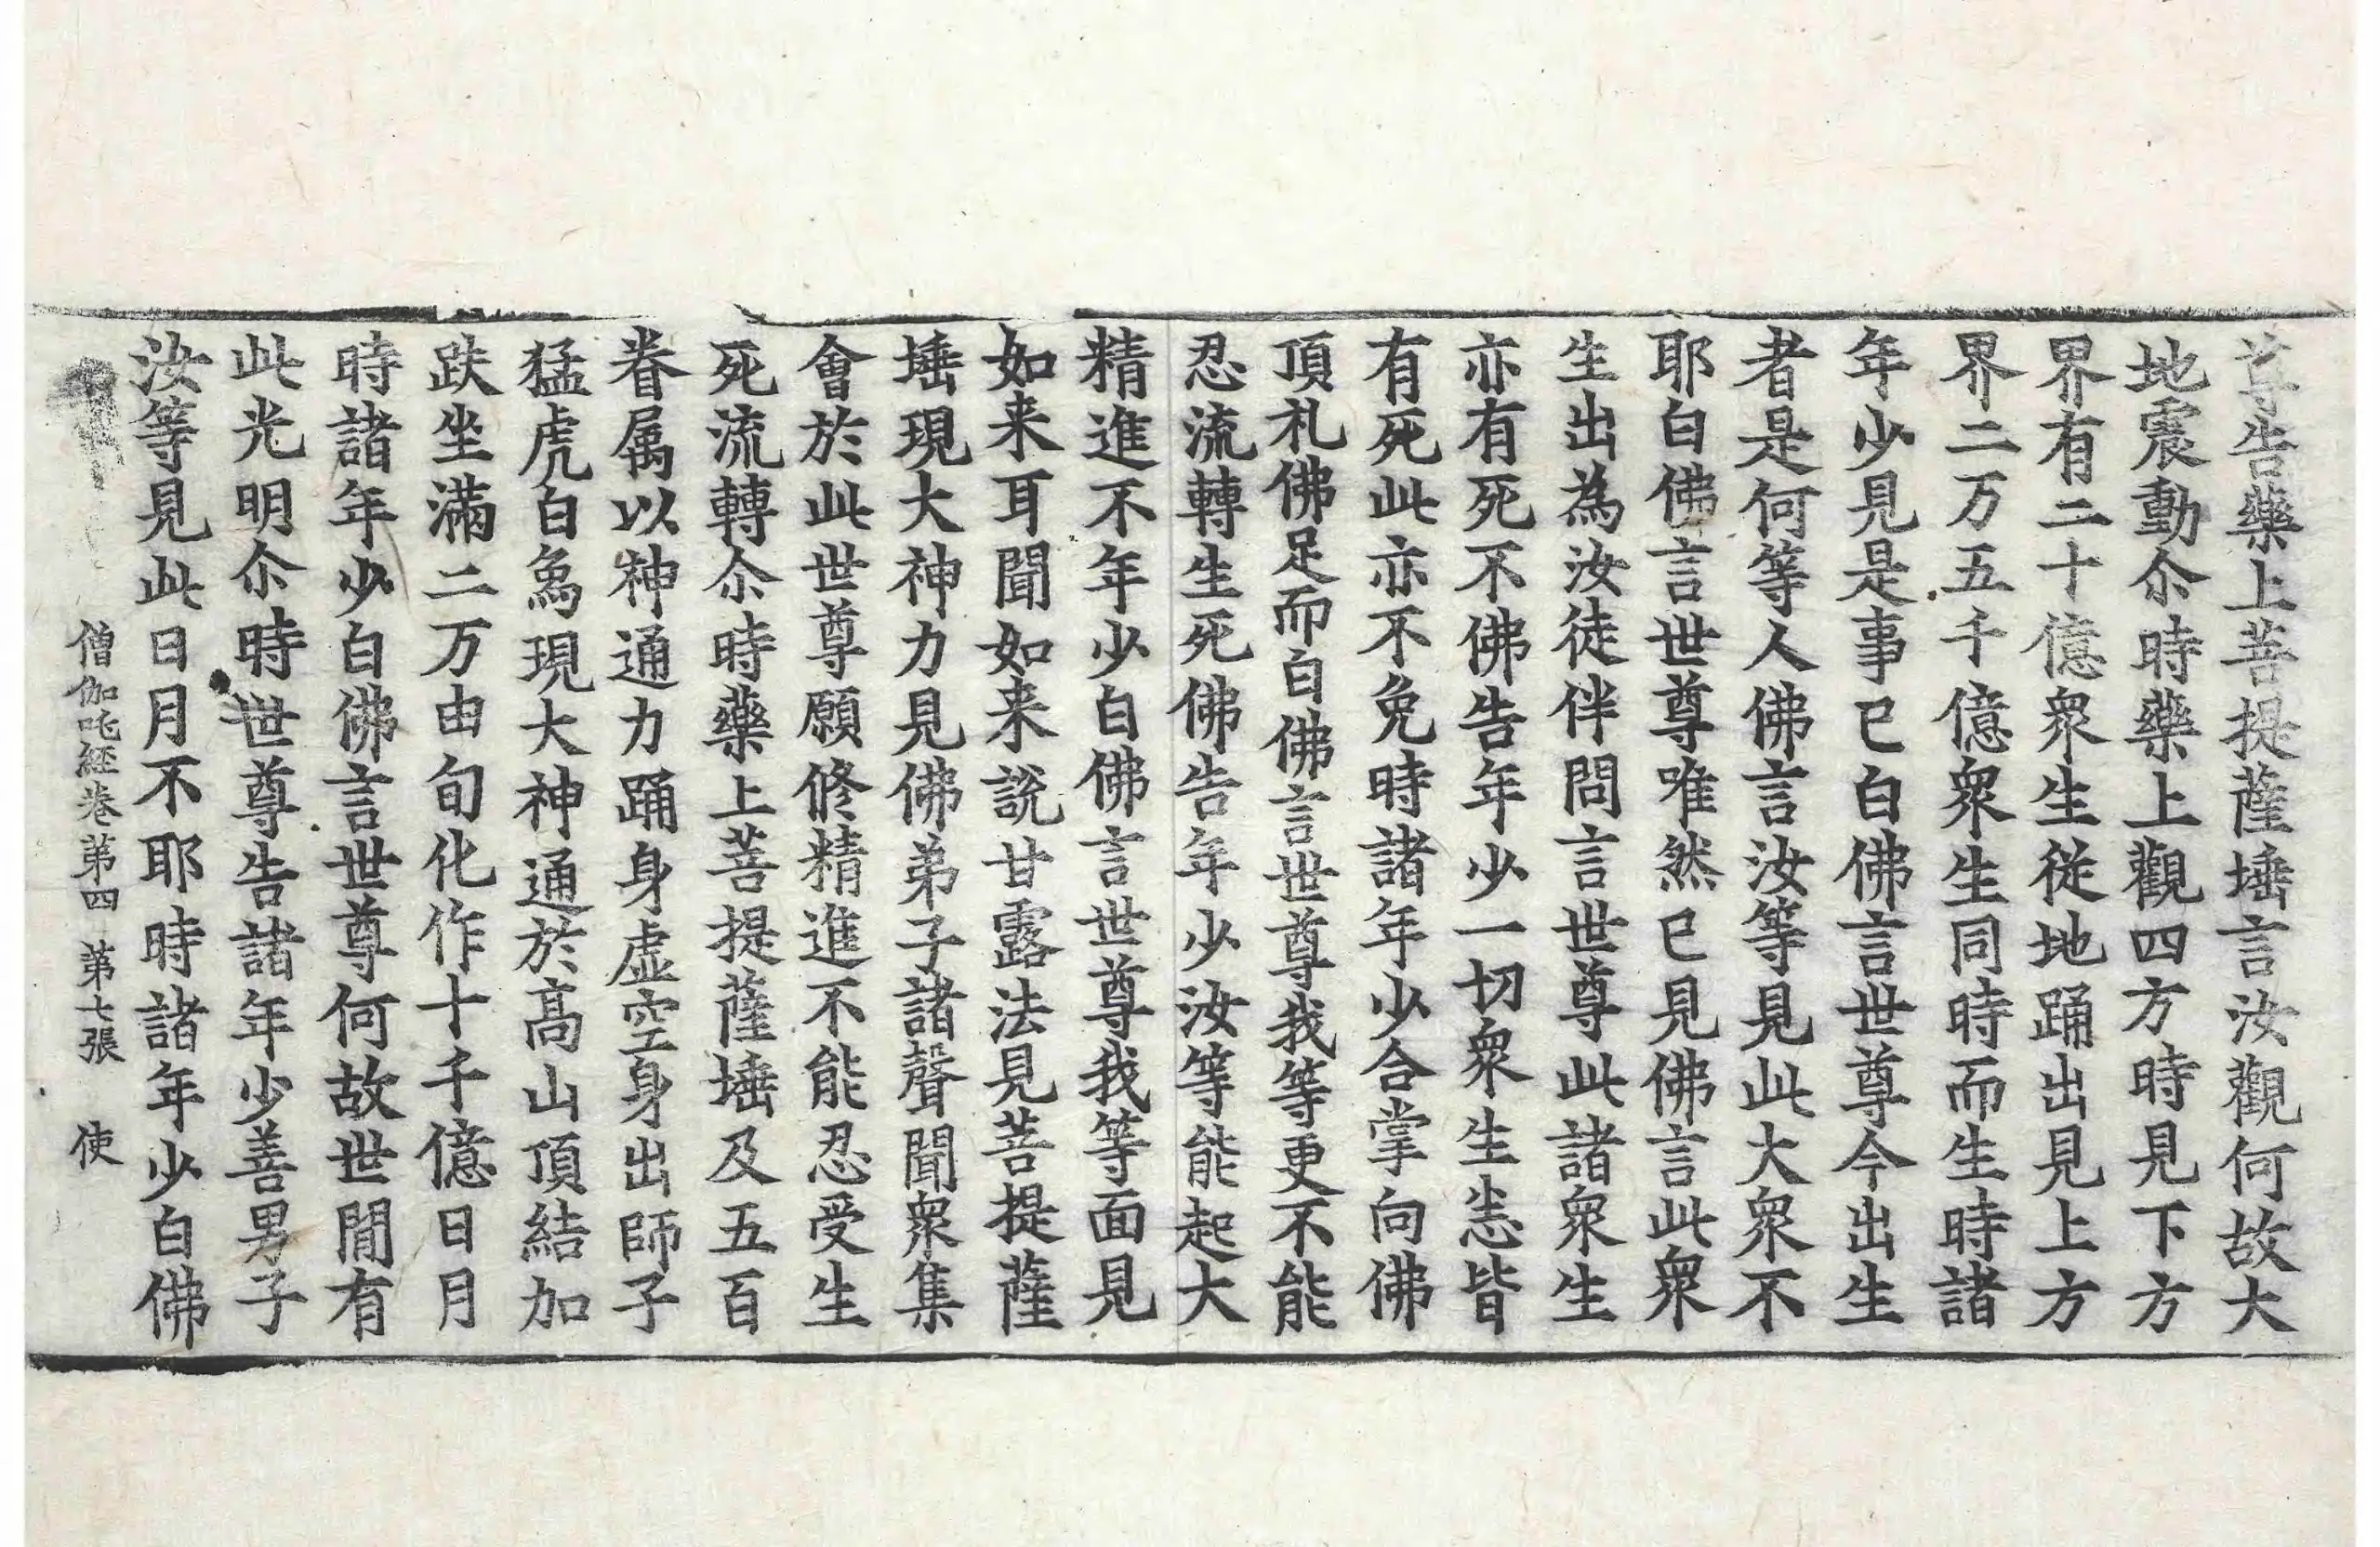 尊告藥上菩提薩埵言汝觀何故大
地震動尒時藥上觀四方時見下方
界有二十億衆生從地踊出見上方
界二万五千億衆生同時而生時諸
年少見是事已白佛言世尊今出生
者是何等人佛言汝等見此大衆不
耶白佛言世尊唯然已見佛言此衆
生出為汝徒伴問言世尊此諸衆生
亦有死不佛告年少一切衆生恙皆
有死此亦不免時諸年少合掌向佛
頂礼佛足而白佛言世尊我等更不能
忍流轉生死佛告年少汝等能起大
精進不年少白佛言世尊我等面見
如来耳聞如来說甘露法見菩提薩
埵現大神力見佛弟子諸聲聞衆集
會於此世尊願修精進不能忍受生
死流轉尒時藥上菩提薩埵及五百
眷属以神通力踊身虚空身出師子
猛虎白象現大神通於高山頂結加
趺坐滿二万由旬化作十千億日月
時諸年少白佛言世尊何故世閒有
此光明尒時世尊告諸年少善男子
汝等見此日月不耶時諸年少白佛
僧伽吒経卷第四 第七張 使